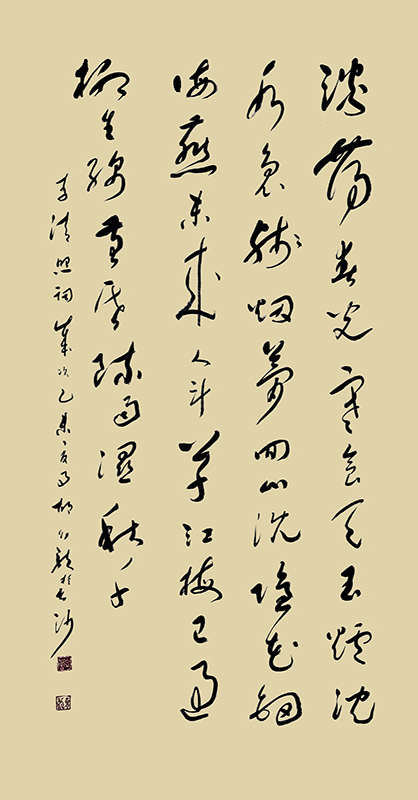 淡荡春光寒食天玉爐沈
水袅残烟夢回山枕隐花钿
海燕未来人斗草江梅已过
柳生绵黄昏疏雨濕秋千
李清照詞歲次乙未夏月於长沙